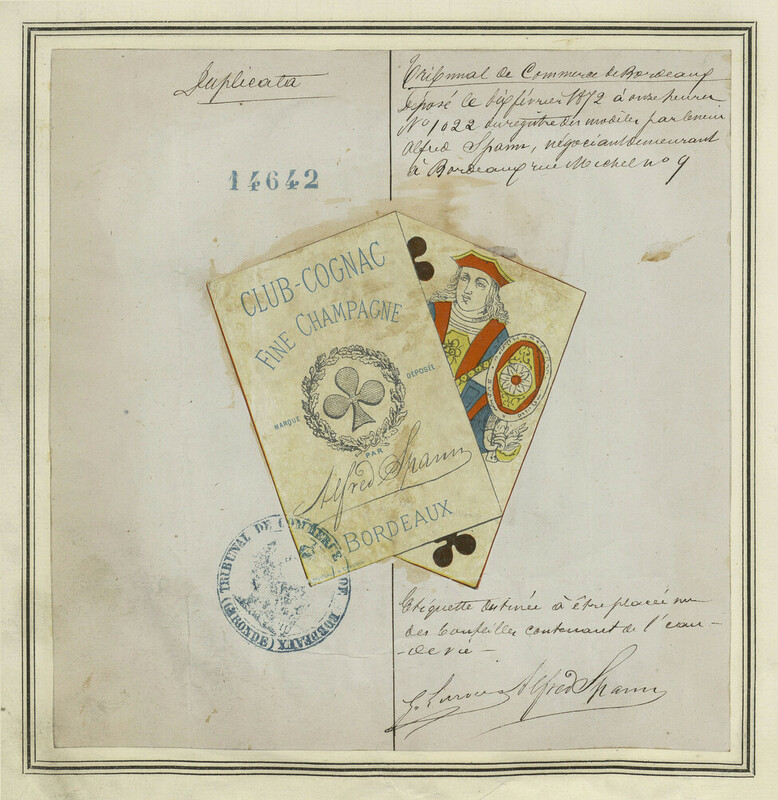 Duplicata
14642
Tribunal de Commerce de Bordeaux
Déposé le six février 1872 à onze heures
No 1022 du registre des modèles par le sieur
Alfred Spann, négociant demeurant
à Bordeaux rue Michel no 9
CLUB-COGNAC
FINE CHAMPAGNE
MARQUE DÉPOSÉE
PAR
Alfred Spann
BORDEAUX
TRIBUNAL DE COMMERCE DE BORDEAUX (GIRONDE)
Etiquette destinée à être placée sur
des bouteilles contenant de l'eau-
-de vie -
Alfred Spann